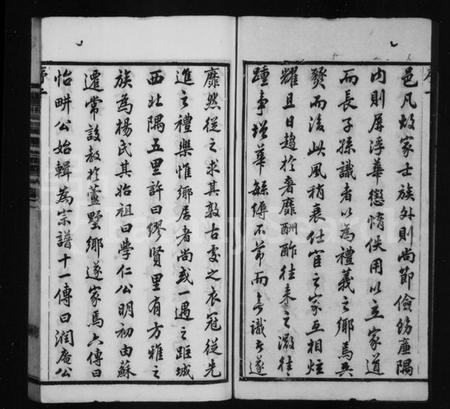 邑凡故家士族外則尚節儉飭廉隅
內則屏浮華懲惰佚用以立家道
而長子孫識者以為禮義之鄉焉兵
燹而後此風稍衰仕宦之家互相炫
耀且日趨於奢靡酬酢往來之澂往
踵事增華縟不節而去識者遂
靡然從之求其敦古處之衣冠從先
進之禮樂惟鄉居者尚或一遇之距城
西北隅五里許曰繆賢里有方雅之
族為楊氏其始祖曰學仁公明初由蘇
遷常設教於萱墅鄉遂家焉六傳曰
怡畊公始輯為宗譜十一傳曰潤庵公
序
一